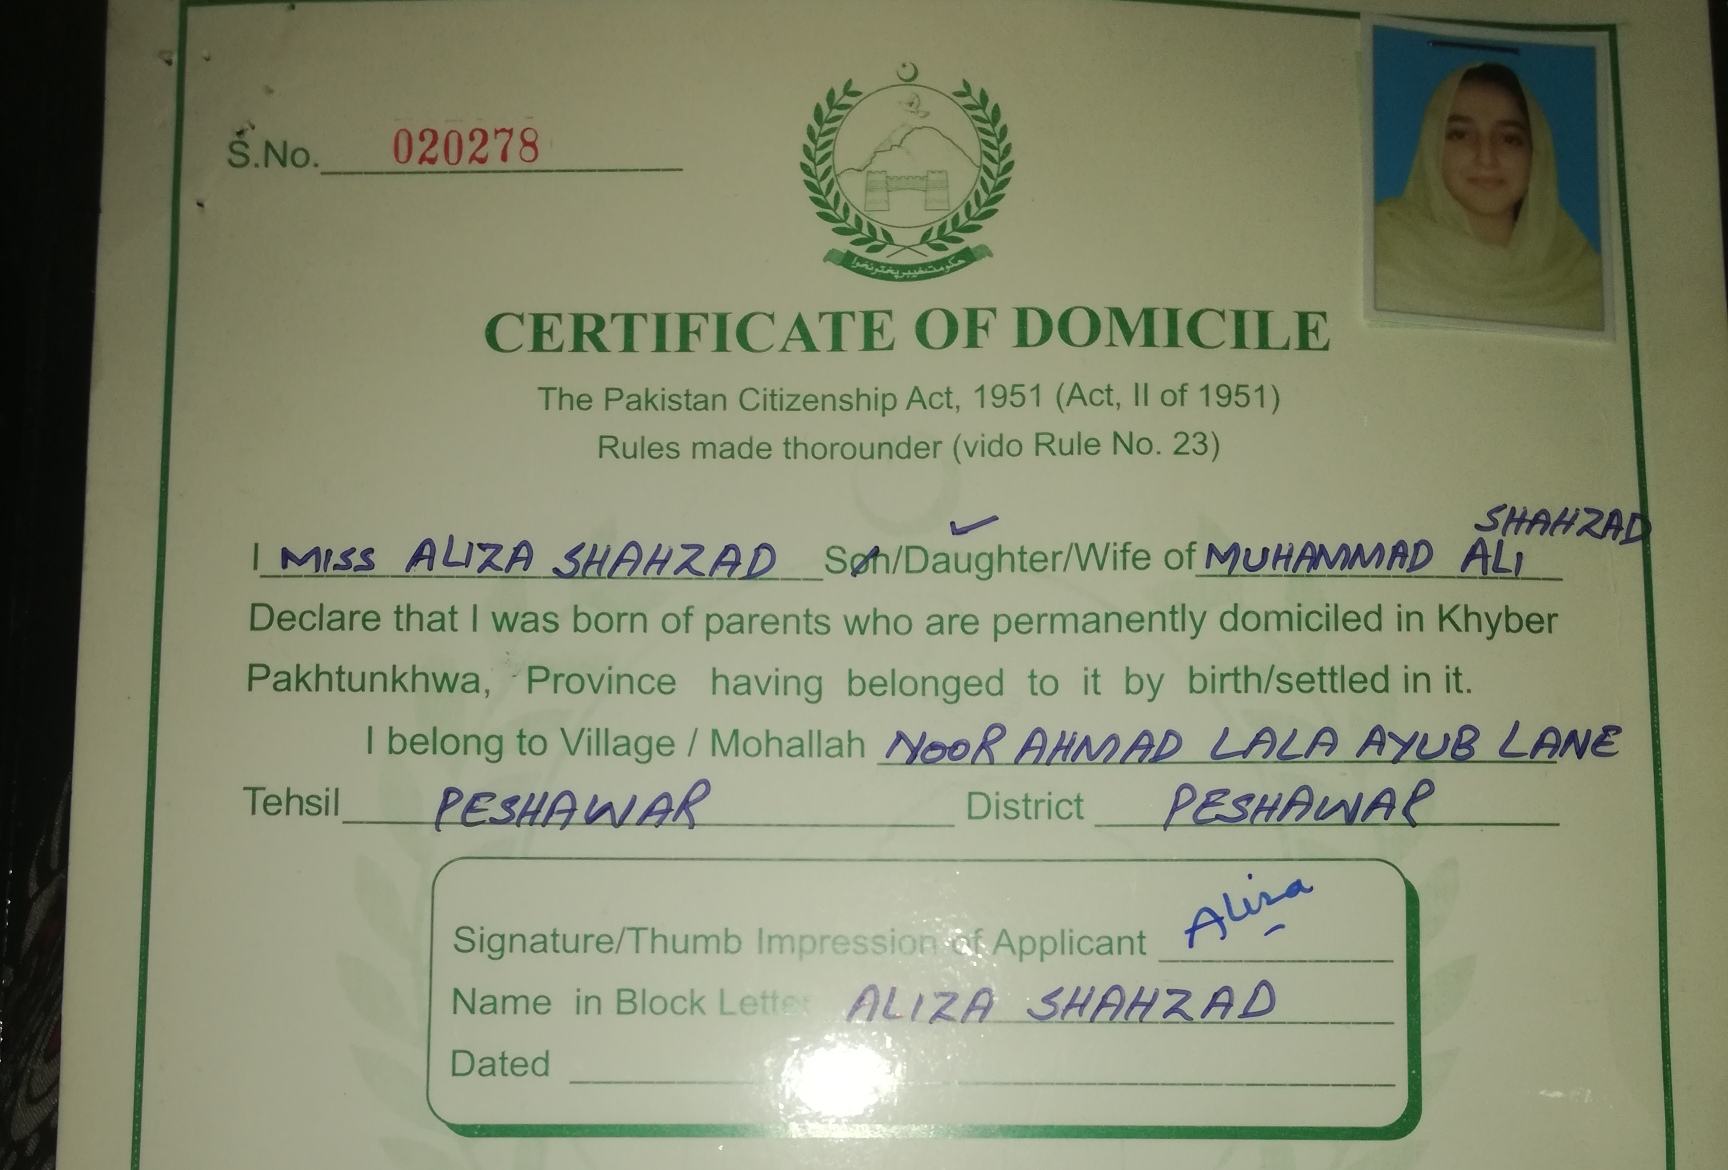 S.No. 020278
حکومت خیبر پختونخوا
CERTIFICATE OF DOMICILE
The Pakistan Citizenship Act, 1951 (Act, II of 1951)
Rules made thorounder (vido Rule No. 23)
SHAHZAD
I MISS ALIZA SHAHZAD Son/Daughter/Wife of MUHAMMAD ALI
Declare that I was born of parents who are permanently domiciled in Khyber
Pakhtunkhwa, Province having belonged to it by birth/settled in it.
I belong to Village / Mohallah NOOR AHMAD LALA AYUB LANE
Tehsil PESHAWAR District PESHAWAR
Signature/Thumb Impression of Applicant Aliza
Name in Block Letter ALIZA SHAHZAD
Dated